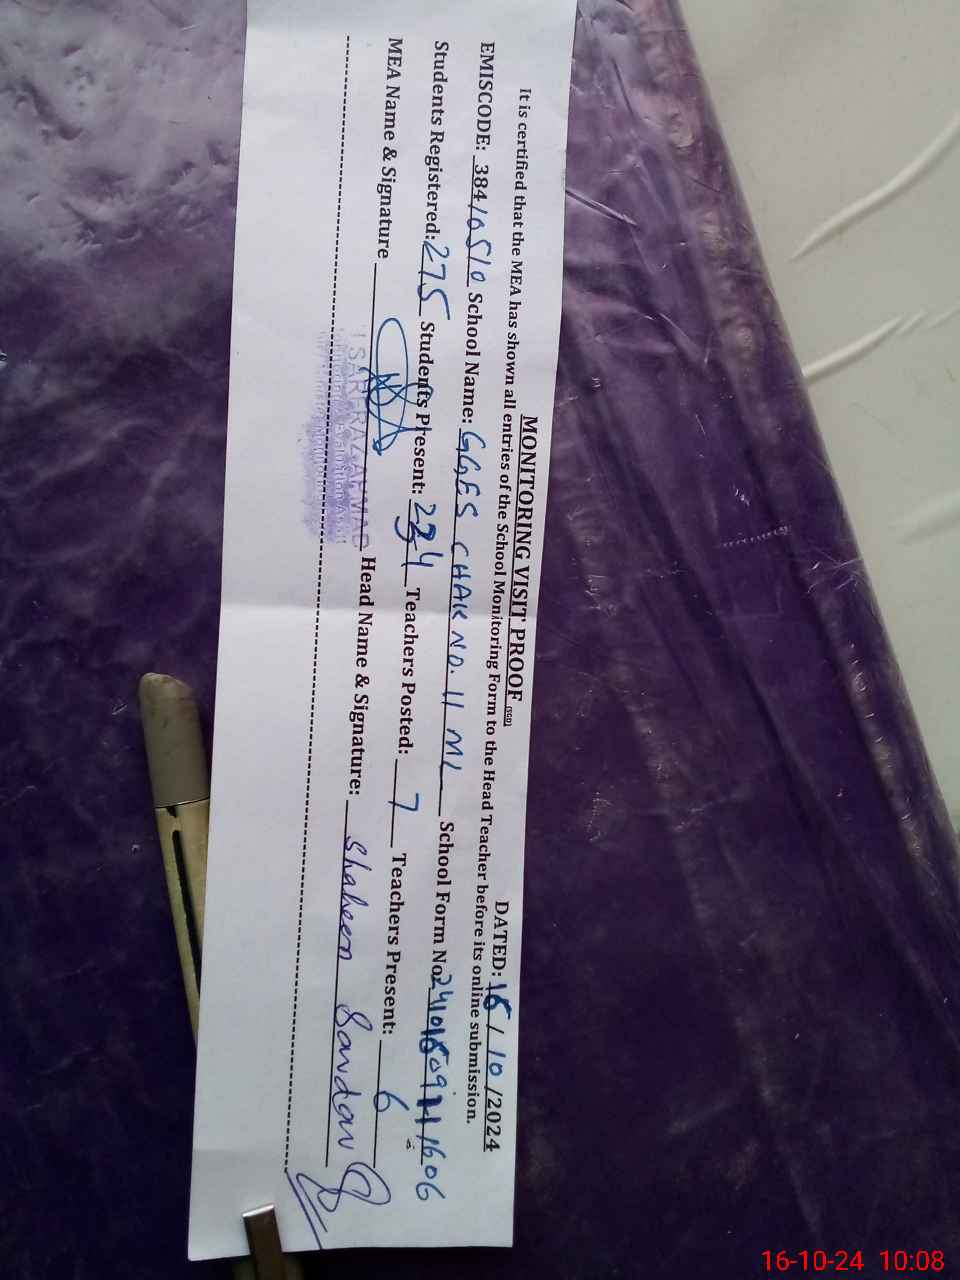 MONITORING VISIT PROOF (SGD) DATED: 16 / 10 /2024
It is certified that the MEA has shown all entries of the School Monitoring Form to the Head Teacher before its online submission.
EMISCODE: 38410510 School Name: GGES CHAK NO. 11 ML School Form No
Students Registered: 275 Students Present: 234 Teachers Posted: 7 Teachers Present: 6
MEA Name & Signature Head Name & Signature: Shaheen Sardar
SARFRAZ AHMAD
16-10-24 10:08